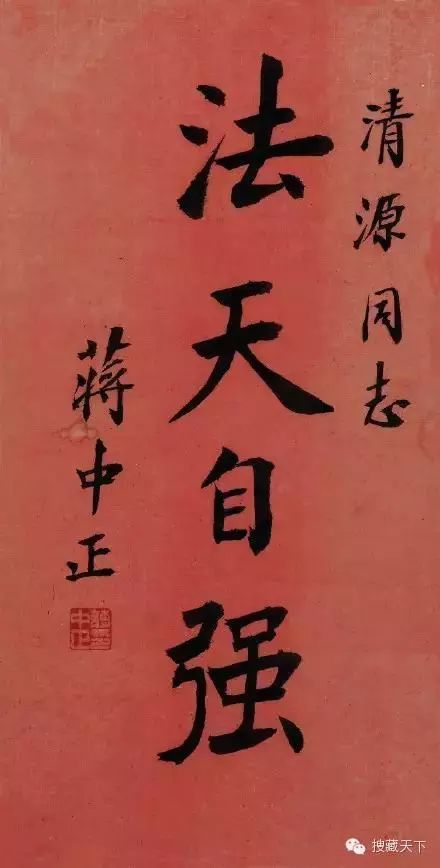 清源同志
法天自强
蒋中正
搜藏天下